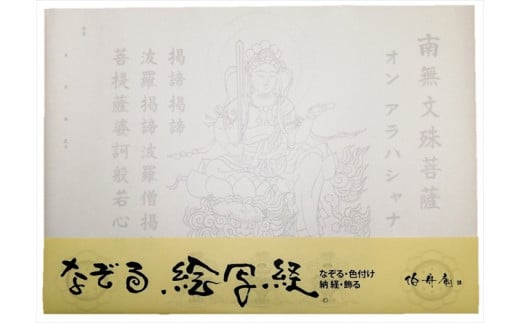 南無文殊菩薩
オン アラハシャナ
掲諦掲諦
波羅掲諦波羅僧掲
菩提薩婆訶般若心
なぞる絵写経。
なぞる・色付け
納経・飾る